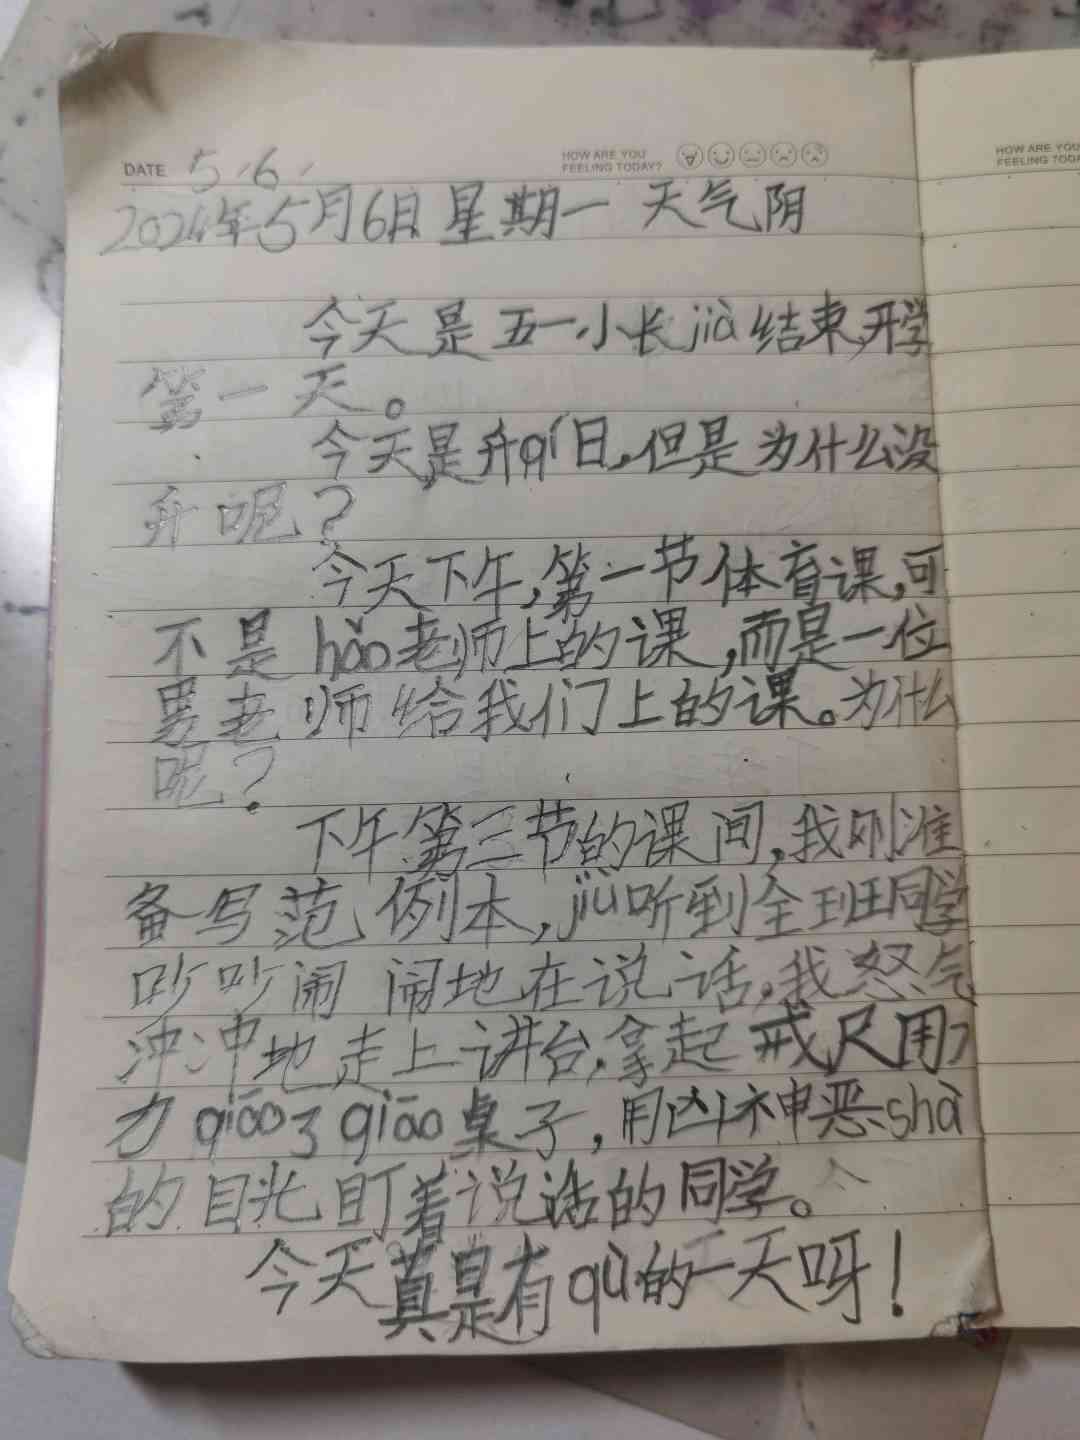 DATE 5.6.
HOW ARE YOU
FEELING TODAY?
HOW ARE YOU
FEELING TODA
2024年5月6日 星期一 天气阴
今天是五一小长jià结束,开学
第一天。
今天是升qí日,但是为什么没
升呢?
今天下午,第一节体育课,可
不是hǎo老师上的课,而是一位
男老师给我们上的课。为什么
呢?
下午第三节的课间,我刚准
备写范例本,jiù听到全班同学
吵吵闹闹地在说话,我怒气
冲冲地走上讲台,拿起戒尺用
力qiāo了qiāo桌子,用凶神恶shà
的目光盯着说话的同学。
今天真是有qù的一天呀!